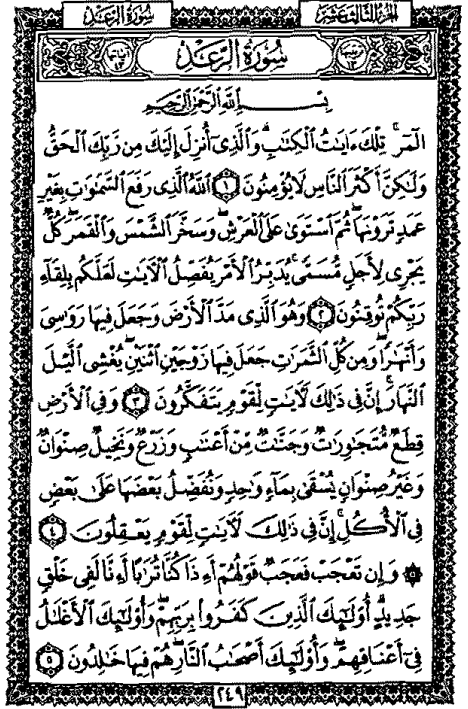 سُورَةُ الرَّعْدِ
الجزء الثالث عشر
سُورَةُ الرَّعْدِ
بِسْمِ اللَّهِ الرَّحْمَٰنِ الرَّحِيمِ
الٓمٓر ۚ تِلْكَ ءَايَٰتُ ٱلْكِتَٰبِ ۗ وَٱلَّذِىٓ أُنزِلَ إِلَيْكَ مِن رَّبِّكَ ٱلْحَقُّ
وَلَٰكِنَّ أَكْثَرَ ٱلنَّاسِ لَا يُؤْمِنُونَ ١ ٱللَّهُ ٱلَّذِى رَفَعَ ٱلسَّمَٰوَٰتِ بِغَيْرِ
عَمَدٍ تَرَوْنَهَا ۖ ثُمَّ ٱسْتَوَىٰ عَلَى ٱلْعَرْشِ ۖ وَسَخَّرَ ٱلشَّمْسَ وَٱلْقَمَرَ ۖ كُلٌّ
يَجْرِى لِأَجَلٍ مُّسَمًّى ۚ يُدَبِّرُ ٱلْأَمْرَ يُفَصِّلُ ٱلْءَايَٰتِ لَعَلَّكُم بِلِقَآءِ
رَبِّكُمْ تُوقِنُونَ ٢ وَهُوَ ٱلَّذِى مَدَّ ٱلْأَرْضَ وَجَعَلَ فِيهَا رَوَٰسِىَ
وَأَنْهَٰرًا ۖ وَمِن كُلِّ ٱلثَّمَرَٰتِ جَعَلَ فِيهَا زَوْجَيْنِ ٱثْنَيْنِ ۖ يُغْشِى ٱلَّيْلَ
ٱلنَّهَارَ ۚ إِنَّ فِى ذَٰلِكَ لَءَايَٰتٍ لِّقَوْمٍ يَتَفَكَّرُونَ ٣ وَفِى ٱلْأَرْضِ
قِطَعٌ مُّتَجَٰوِرَٰتٌ وَجَنَّٰتٌ مِّنْ أَعْنَٰبٍ وَزَرْعٌ وَنَخِيلٌ صِنْوَانٌ
وَغَيْرُ صِنْوَانٍ يُسْقَىٰ بِمَآءٍ وَٰحِدٍ وَنُفَضِّلُ بَعْضَهَا عَلَىٰ بَعْضٍ
فِى ٱلْأُكُلِ ۚ إِنَّ فِى ذَٰلِكَ لَءَايَٰتٍ لِّقَوْمٍ يَعْقِلُونَ ٤
۞ وَإِن تَعْجَبْ فَعَجَبٌ قَوْلُهُمْ أَءِذَا كُنَّا تُرَٰبًا أَءِنَّا لَفِى خَلْقٍ
جَدِيدٍ ۗ أُو۟لَٰٓئِكَ ٱلَّذِينَ كَفَرُوا۟ بِرَبِّهِمْ ۖ وَأُو۟لَٰٓئِكَ ٱلْأَغْلَٰلُ
فِىٓ أَعْنَاقِهِمْ ۖ وَأُو۟لَٰٓئِكَ أَصْحَٰبُ ٱلنَّارِ ۖ هُمْ فِيهَا خَٰلِدُونَ ٥
٢٤٩